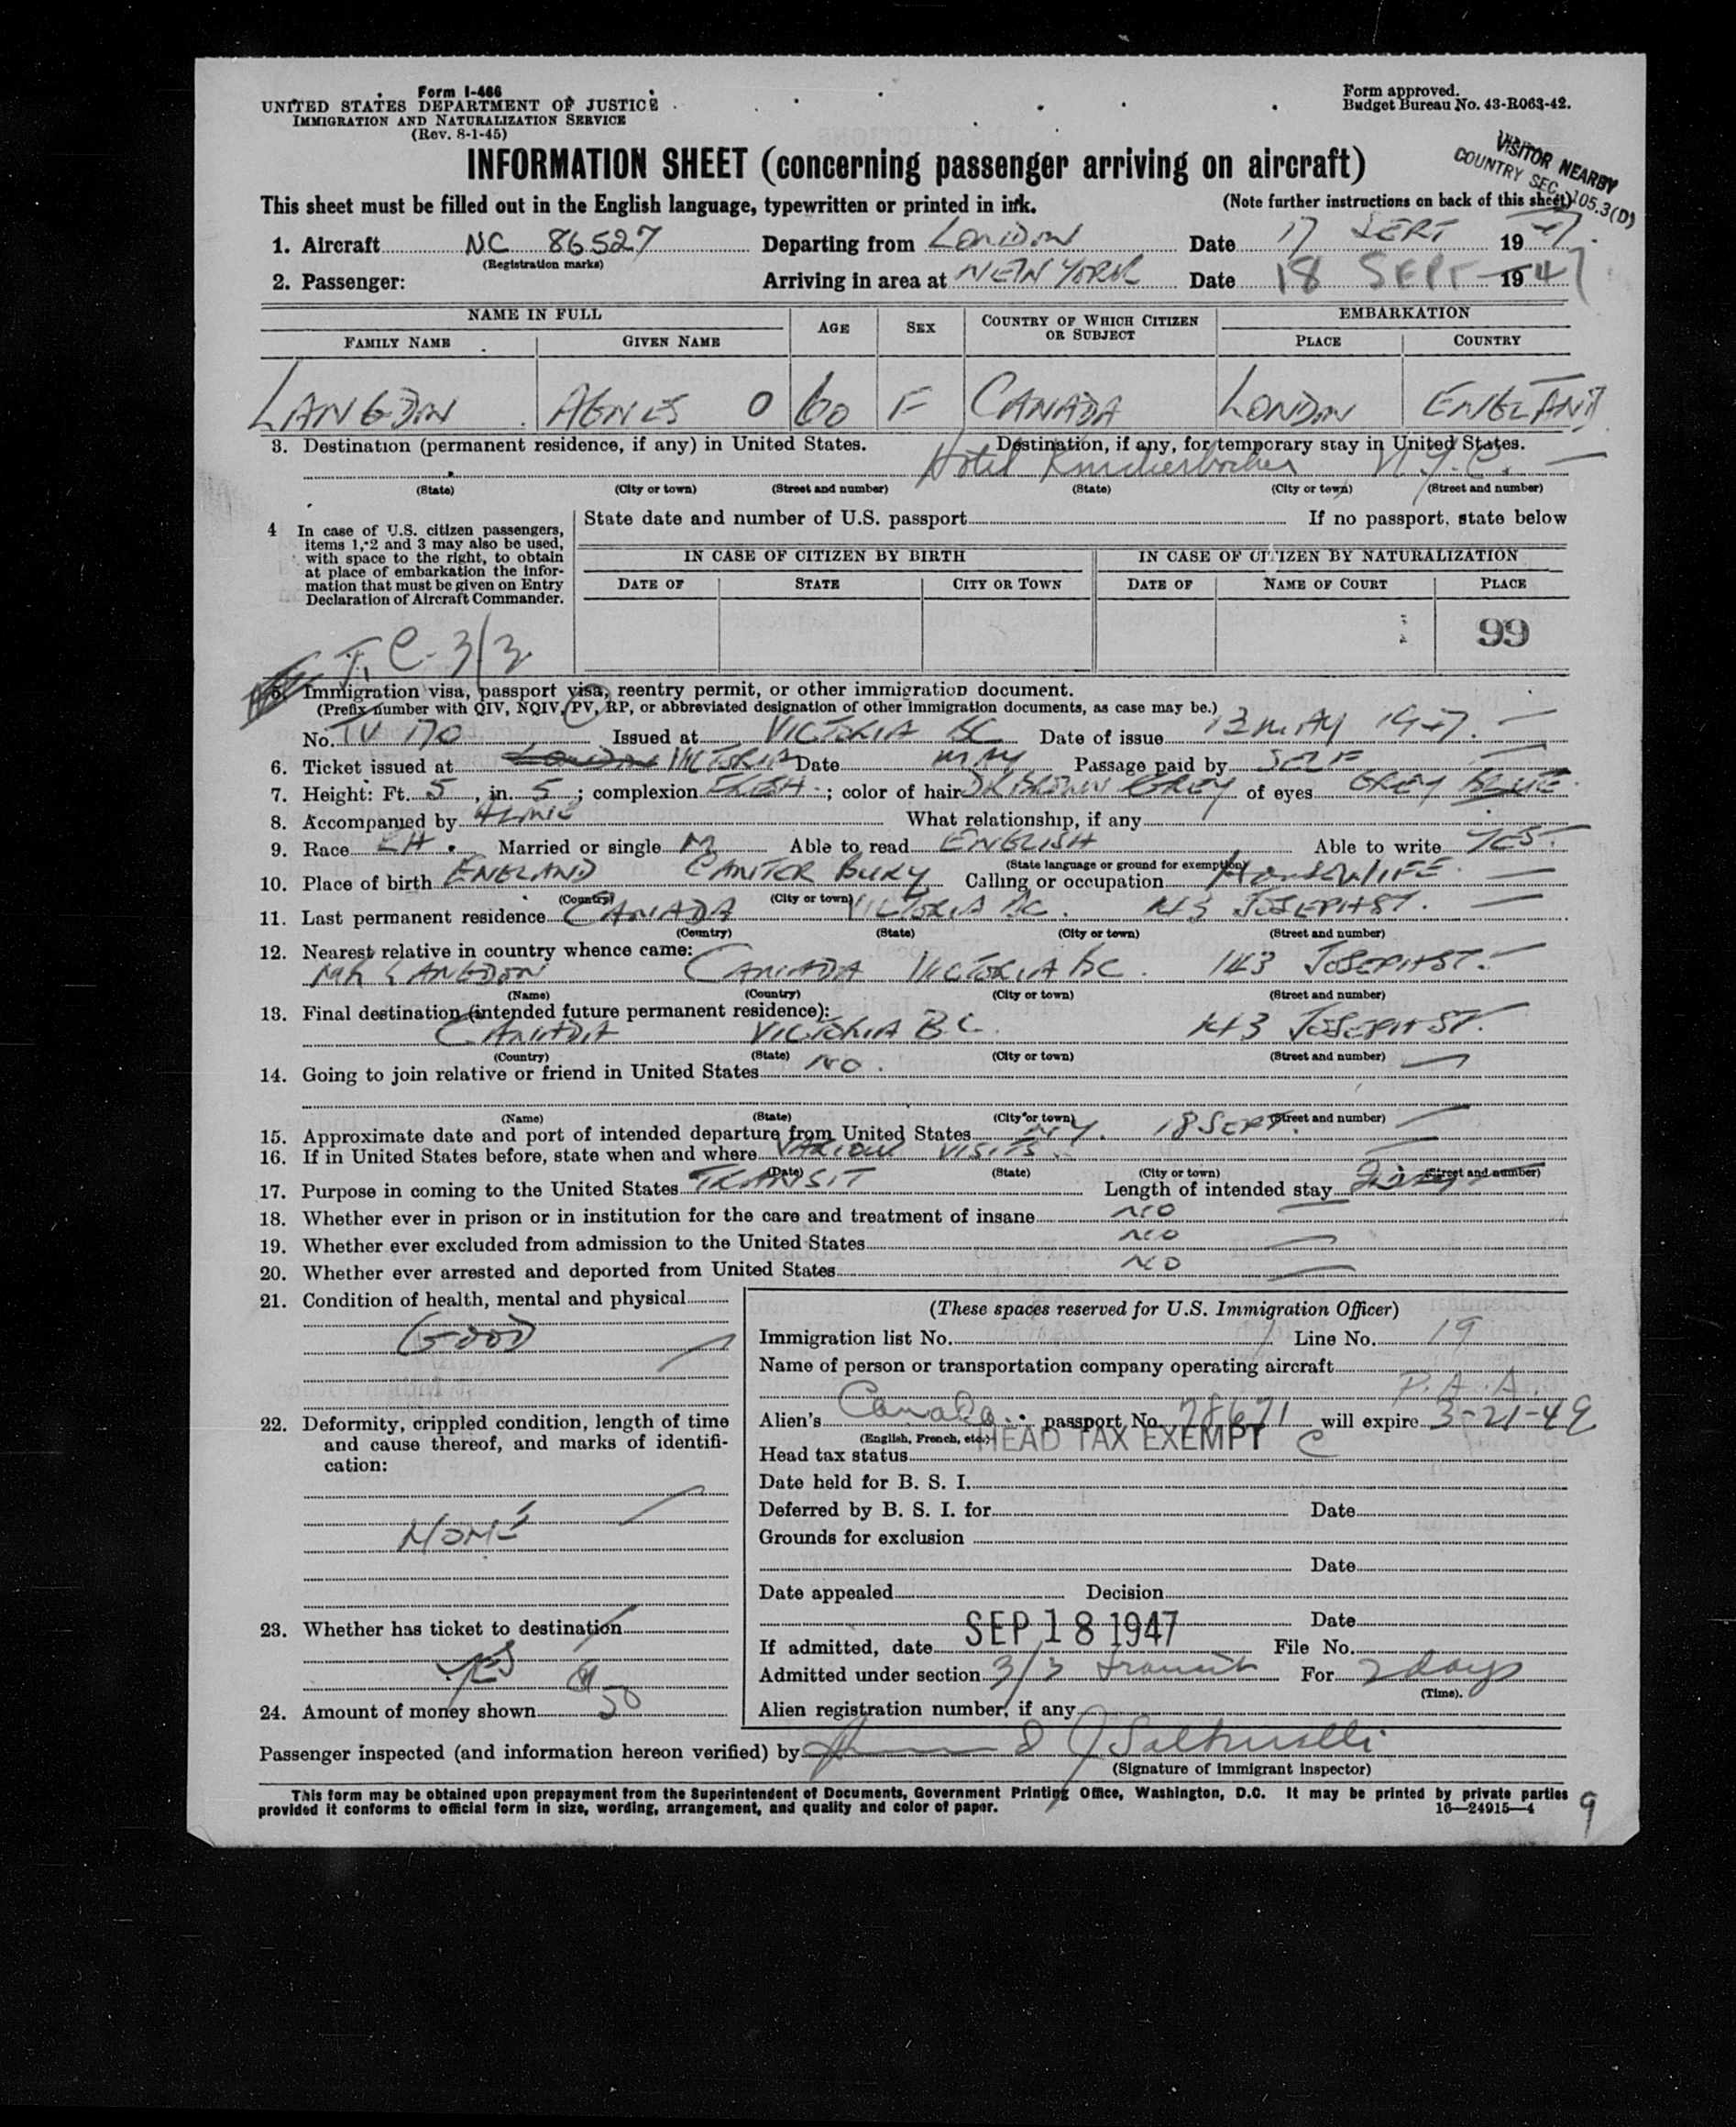 Form I-466
UNITED STATES DEPARTMENT OF JUSTICE
IMMIGRATION AND NATURALIZATION SERVICE
(Rev. 8-1-45)
Form approved.
Budget Bureau No. 43-R063-42.
VISITOR NEARBY
COUNTRY SEC. 105.3(D)
INFORMATION SHEET (concerning passenger arriving on aircraft)
This sheet must be filled out in the English language, typewritten or printed in ink. (Note further instructions on back of this sheet)
1. Aircraft NC 86527 Departing from LONDON Date 17 SEPT 1947.
(Registration marks)
2. Passenger: Arriving in area at NEW YORK Date 18 SEPT 1947
NAME IN FULL AGE SEX COUNTRY OF WHICH CITIZEN OR SUBJECT EMBARKATION
FAMILY NAME GIVEN NAME PLACE COUNTRY
LANGDON AGNES O 60 F CANADA LONDON ENGLAND
3. Destination (permanent residence, if any) in United States. Destination, if any, for temporary stay in United States.
Hotel Knickerbocker N.Y.C.
(State) (City or town) (Street and number) (State) (City or town) (Street and number)
4 In case of U.S. citizen passengers, items 1, 2 and 3 may also be used, with space to the right, to obtain at place of embarkation the information that must be given on Entry Declaration of Aircraft Commander.
State date and number of U.S. passport If no passport, state below
IN CASE OF CITIZEN BY BIRTH IN CASE OF CITIZEN BY NATURALIZATION
DATE OF STATE CITY OR TOWN DATE OF NAME OF COURT PLACE
99
T.C. 3/3
5. Immigration visa, passport visa, reentry permit, or other immigration document.
(Prefix number with QIV, NQIV, PV, RP, or abbreviated designation of other immigration documents, as case may be.)
No. TV 170 Issued at VICTORIA BC Date of issue 13 MAY 1947.
6. Ticket issued at LONDON VICTORIA Date MAY Passage paid by SELF
7. Height: Ft. 5, in. 5; complexion FRESH; color of hair DK BROWN GREY of eyes GREY BLUE.
8. Accompanied by ALONE What relationship, if any
9. Race EN. Married or single M Able to read ENGLISH Able to write YES.
(State language or ground for exemption)
10. Place of birth ENGLAND CANTER BURY Calling or occupation HOUSEWIFE.
(Country) (City or town)
11. Last permanent residence CANADA VICTORIA BC. 143 JOSEPH ST.
(Country) (State) (City or town) (Street and number)
12. Nearest relative in country whence came:
MR LANGDON CANADA VICTORIA BC. 143 JOSEPH ST.
(Name) (Country) (City or town) (Street and number)
13. Final destination (intended future permanent residence):
CANADA VICTORIA B.C. 143 JOSEPH ST.
(Country) (State) (City or town) (Street and number)
14. Going to join relative or friend in United States NO.
(Name) (State) (City or town) (Street and number)
15. Approximate date and port of intended departure from United States N.Y. 18 SEPT.
16. If in United States before, state when and where VARIOUS VISITS.
(Date) (State) (City or town) (Street and number)
17. Purpose in coming to the United States TRANSIT Length of intended stay
18. Whether ever in prison or in institution for the care and treatment of insane NO
19. Whether ever excluded from admission to the United States NO
20. Whether ever arrested and deported from United States NO
21. Condition of health, mental and physical
GOOD
22. Deformity, crippled condition, length of time and cause thereof, and marks of identification:
NONE
23. Whether has ticket to destination
YES
24. Amount of money shown 50
(These spaces reserved for U.S. Immigration Officer)
Immigration list No. 1 Line No. 19
Name of person or transportation company operating aircraft
P.A.A.
Alien's Canada passport No. 78671 will expire 3-21-49
(English, French, etc.)
Head tax status HEAD TAX EXEMPT C
Date held for B. S. I.
Deferred by B. S. I. for Date
Grounds for exclusion
Date
Date appealed Decision
Date
If admitted, date SEP 18 1947 File No.
Admitted under section 3/3 transit For 2 days
(Time).
Alien registration number, if any
Passenger inspected (and information hereon verified) by
(Signature of Immigrant Inspector)
This form may be obtained upon prepayment from the Superintendent of Documents, Government Printing Office, Washington, D.C. It may be printed by private parties
provided it conforms to official form in size, wording, arrangement, and quality and color of paper. 16—24915—4
9